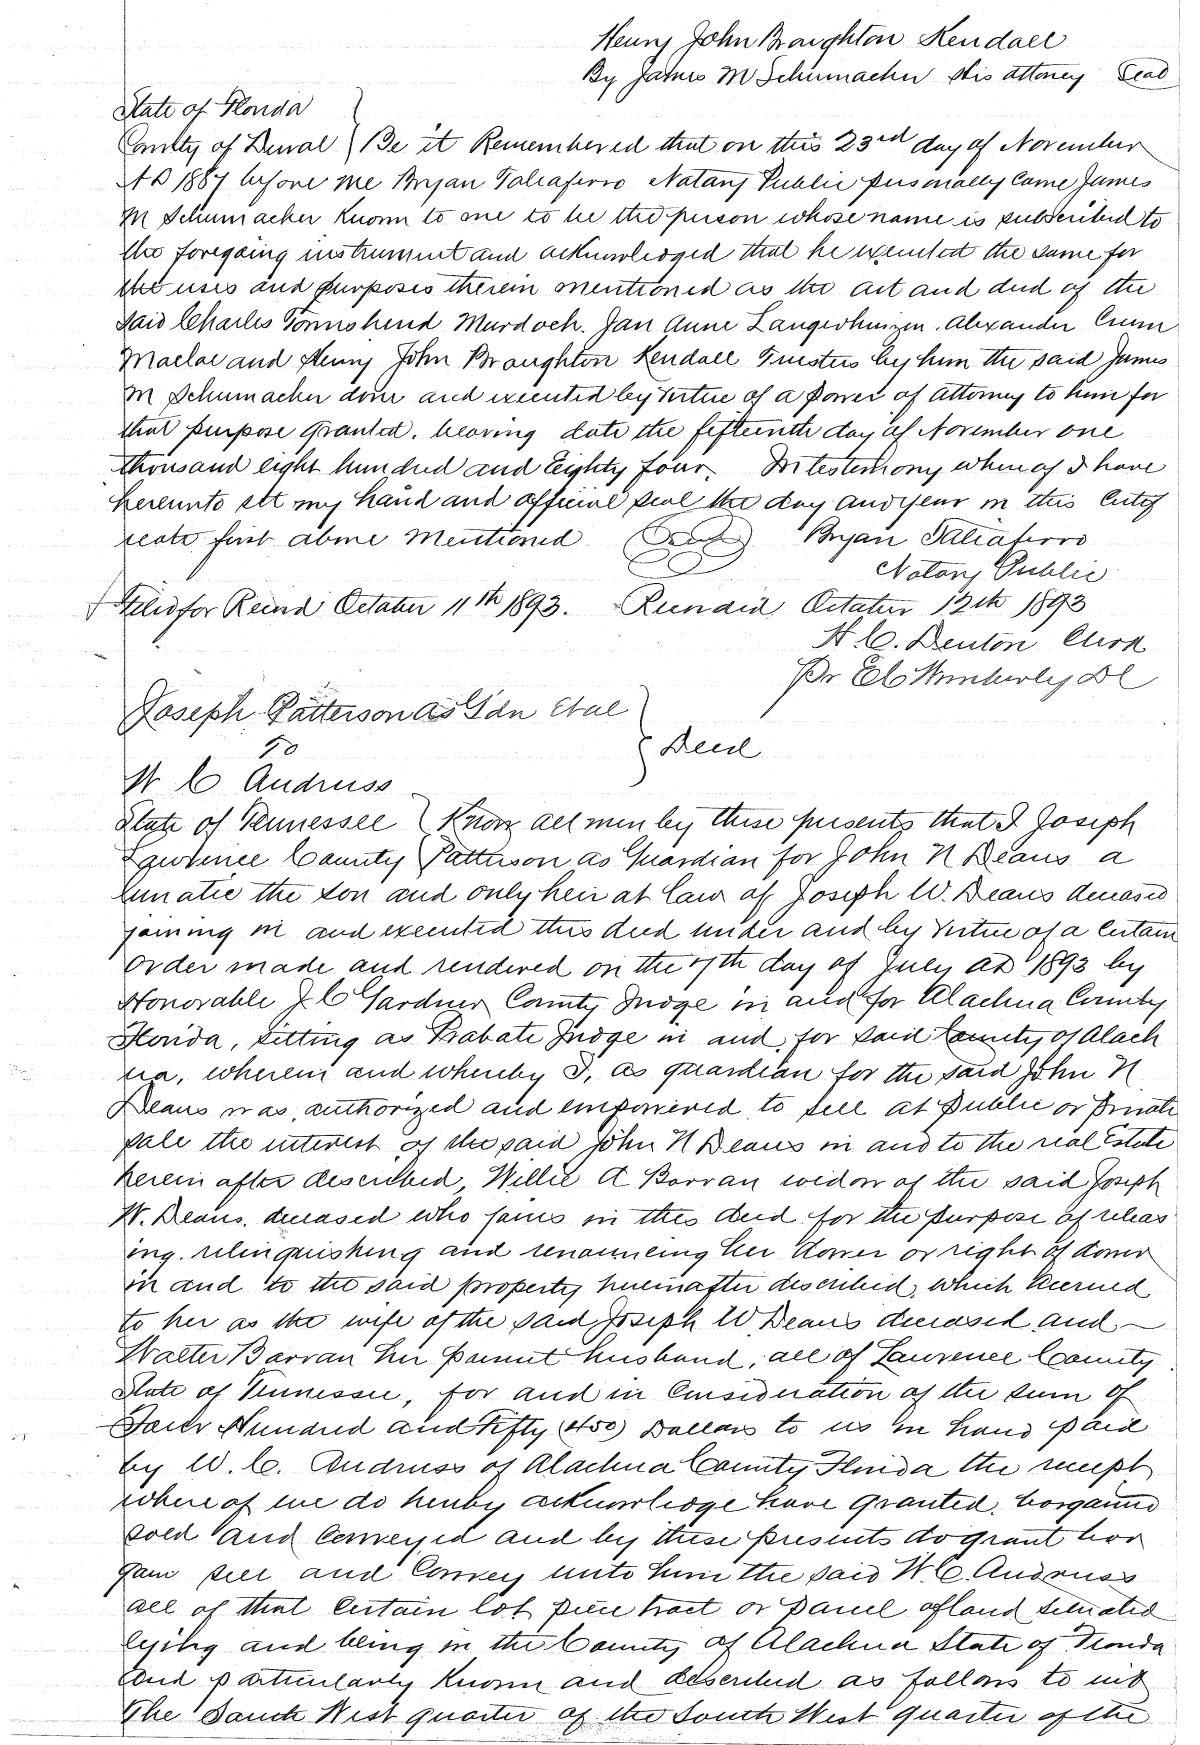 Henry John Broughton Kendall
By James M Schumacher His attorney Seal
State of Florida
County of Duval } Be it Remembered that on this 23rd day of November
AD 1887 before me Bryan Taliaferro Notary Public personally came James
M Schumacker Known to me to be the person whose name is subscribed to
the foregoing instrument and acknowledged that he executed the same for
the uses and purposes therein mentioned as the act and deed of the
said Charles Townshend Murdoch. Jan Anne Langerhuizen. Alexander Crum
Maclae and Henry John Broughton Kendall Trustees by him the said James
M Schumacher done and executed by virtue of a power of Attorney to him for
that purpose granted. bearing date the fifteenth day of November one
thousand eight hundred and Eighty four. In testimony whereof I have
hereunto set my hand and official seal the day and year in this Certif
icate first above Mentioned Seal Bryan Taliaferro
Notary Public
Filed for Record October 11th 1893. Recorded October 12th 1893
H. C. Denton Clerk
Pr E C Wimberly DC
Joseph Patterson as Gdn Etal
To } Deed
W C Andruss
State of Tennessee } Know all men by these presents that I Joseph
Lawrence County Patterson as Guardian for John N Deans a
lunatic the son and only heir at law of Joseph W. Deans deceased
joining in and executed this deed under and by virtue of a certain
Order made and rendered on the 7th day of July AD 1893 by
Honorable J. C Gardner County Judge in and for Alachua County
Florida, sitting as Probate Judge in and for said County of Alach
ua, wherein and whereby I, as guardian for the said John N
Deans was authorized and empowered to sell at public or private
sale the interest of the said John N Deans in and to the real Estate
herein after described, Willie A Barran widow of the said Joseph
W. Deans. deceased who joins in this deed for the purpose of releas
ing. relinquishing and renouncing her dower or right of dower
in and to the said property hereinafter described, which accrued
to her as the wife of the said Joseph W. Deans deceased and
Walter Barran her present husband, all of Laurence County
State of Tennessee, for and in Consideration of the sum of
Four Hundred and Fifty (450) Dollars to us in hand paid
by W. C. Andruss of Alachua County Florida the receipt
where of we do hereby acknowledge have granted. bargained
sold and Conveyed and by these presents do grant bar
gain sell and Convey unto him the said W. C. Andruss
all of that Certain lot piece tract or parcel of land situated
lying and being in the County of Alachua State of Florida
and particularly Known and described as follows to wit
The South West quarter of the South West quarter of the